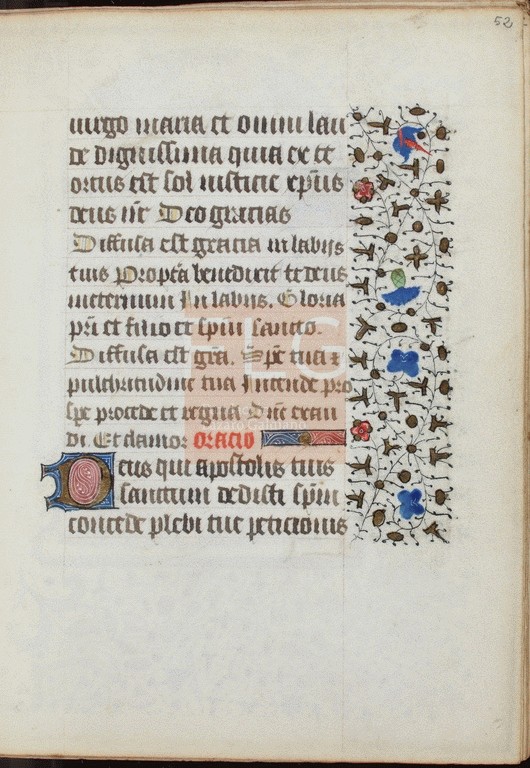 52
uirgo maria et omni lau
de dignissima quia ex te
ortus est sol iusticie xp̄us
deus n̄r Deo gracias
Diffusa est gracia in labijs
tuis Propt̄a benedixit te deus
ineternum In labijs. Gloria
pr̄i et filio et sp̄iu sancto.
Diffusa est gr̄a. Sp̄e tua ⁊
pulchritudine tua Intende pro
sp̄e procede et regna Dn̄e exau
di. Et clamor Oracio
Deus qui apostolis tuis
sanctum dedisti sp̄m
concede plebi tue peticionis
FLG
Lázaro Galdiano